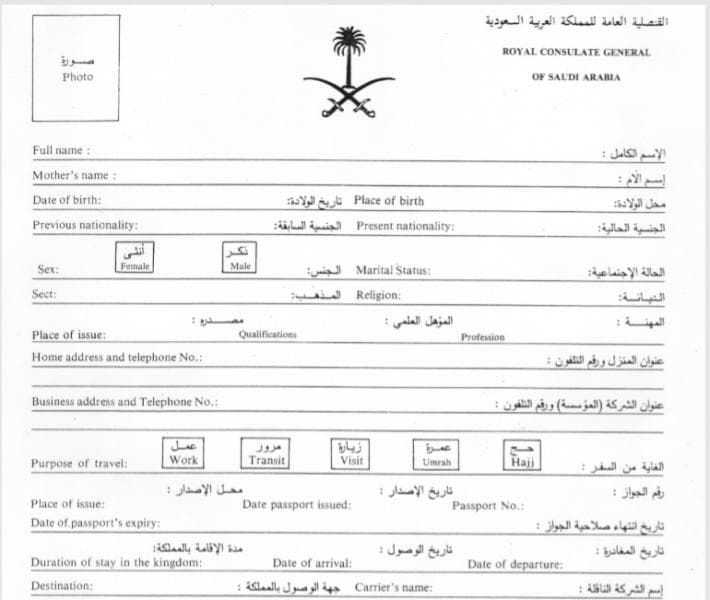 القنصلية العامة للمملكة العربية السعودية
ROYAL CONSULATE GENERAL
OF SAUDI ARABIA
صـــورة
Photo
Full name : الإسم الكامل :
Mother's name : إسـم الأم :
Date of birth: تاريخ الولادة: Place of birth محل الولادة:
Previous nationality: الجنسية السابقة: Present nationality: الجنسية الحالية:
أنثى ذكـر
Female Male
Sex: الجنس: Marital Status: الحالة الإجتماعية:
Sect: المـذهـب: Religion: الديـانـة:
مصـــدره : المؤهل العلمي : المهنـــة :
Place of issue: Qualifications Profession
Home address and telephone No.: عنوان المنزل ورقم التلفون :
Business address and Telephone No.: عنوان الشركة (المؤسسة) ورقم التلفون :
عمـل مرور زيارة عمـرة حـج
Work Transit Visit Umrah Hajj
Purpose of travel: الغاية من السفر :
محـل الإصدار : تاريخ الإصدار : رقم الجواز :
Place of issue: Date passport issued: Passport No.:
Date of passport's expiry: تاريخ انتهاء صلاحية الجواز :
مدة الإقامة بالمملكة: تاريخ الوصول : تاريخ المغادرة :
Duration of stay in the kingdom: Date of arrival: Date of departure:
Destination: جهة الوصول بالمملكة : Carrier's name: إسم الشركة الناقلة :